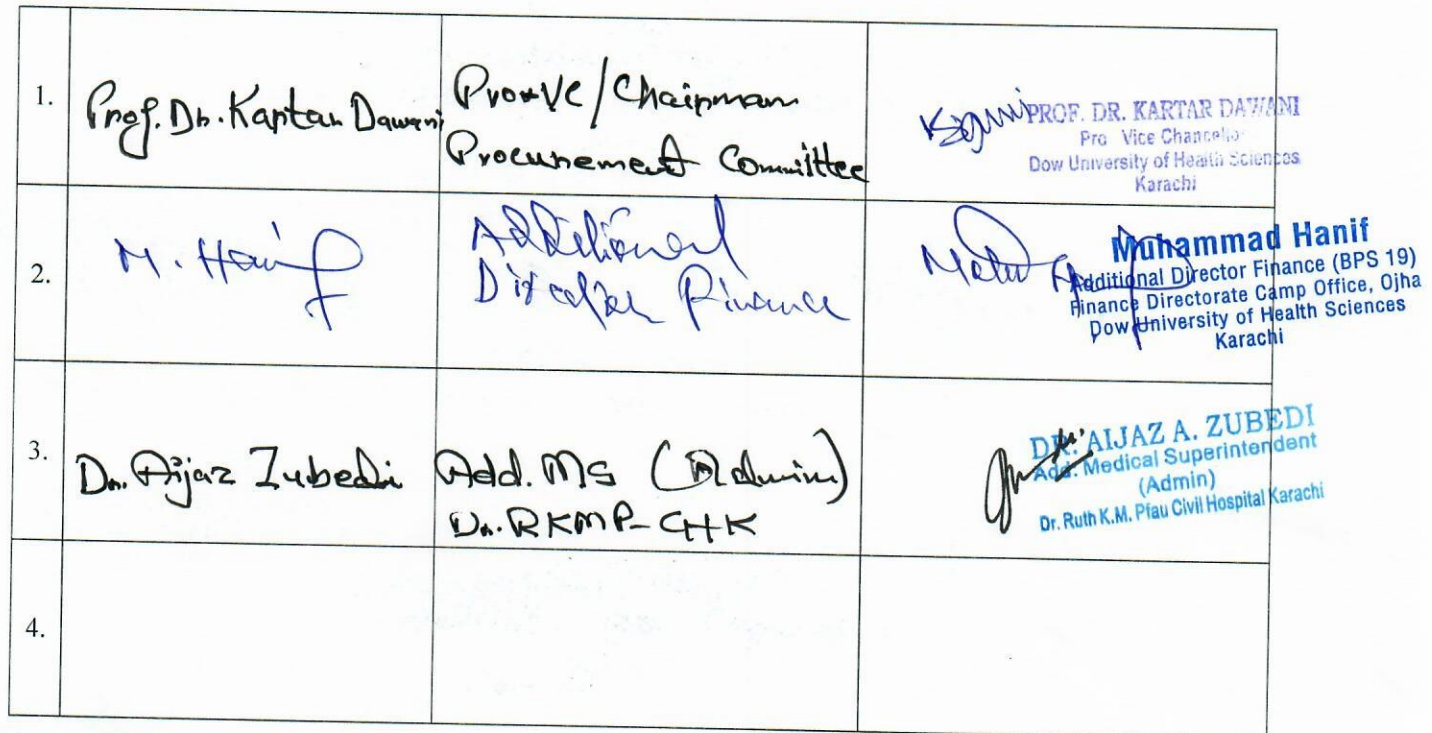 1.
Prof. Dr. Kartar Dawani
Pro-VC/Chairman
Procurement Committee
PROF. DR. KARTAR DAWANI
Pro Vice Chancellor
Dow University of Health Sciences
Karachi
2.
M. Hanif
Additional
Director Finance
Muhammad Hanif
Additional Director Finance (BPS 19)
Finance Directorate Camp Office, Ojha
Dow University of Health Sciences
Karachi
3.
Dr. Aijaz Zubedi
Add. MS (Admin)
Dr. RKMP-CHK
DR. AIJAZ A. ZUBEDI
Add. Medical Superintendent
(Admin)
Dr. Ruth K.M. Pfau Civil Hospital Karachi
4.